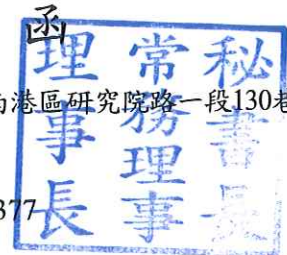 函
南港區研究院路一段130巷
377
秘書長
常務理事
理事長